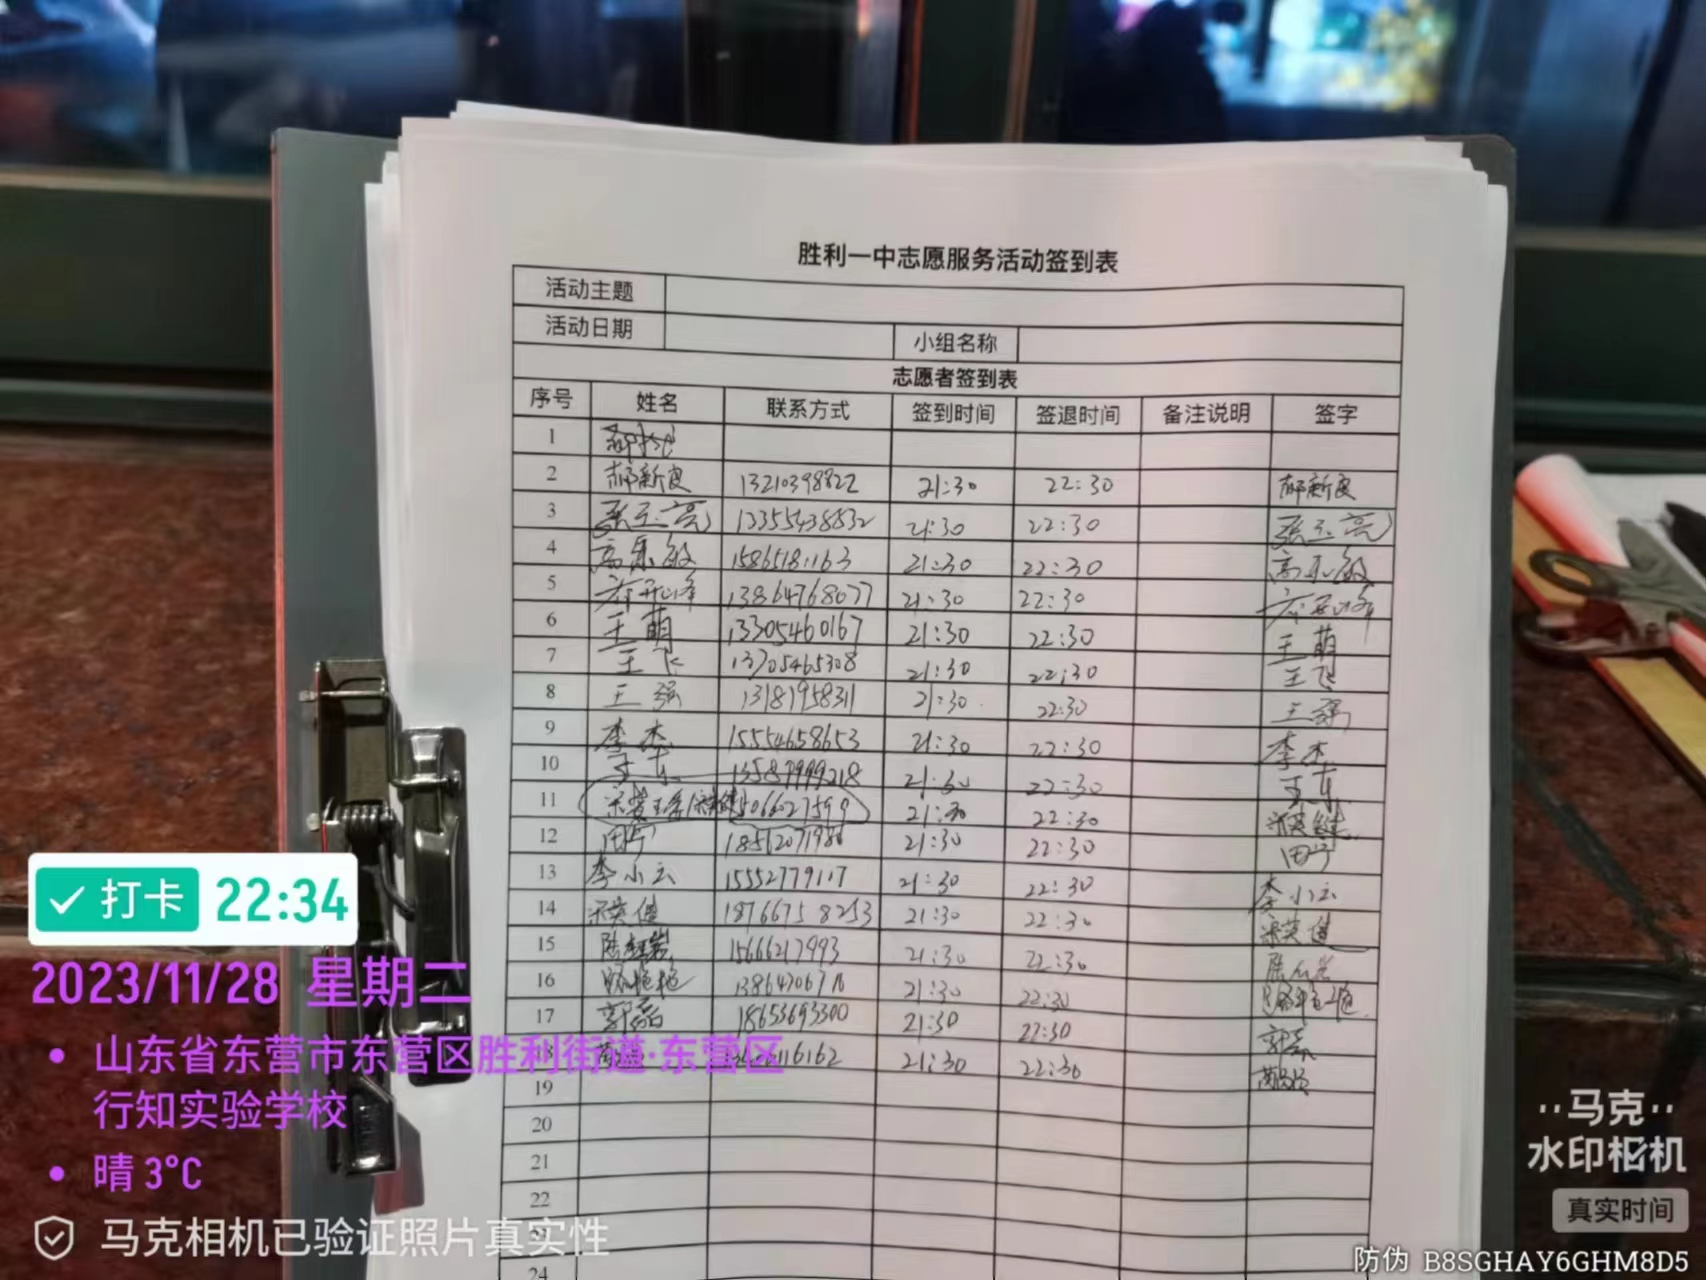 胜利一中志愿服务活动签到表
活动主题
活动日期 小组名称
志愿者签到表
序号 姓名 联系方式 签到时间 签退时间 备注说明 签字
1
2 郝新良 13210398822 21:30 22:30 郝新良
3 张玉亮 21:30 22:30 张玉亮
4 高乐敏 15865181163 21:30 22:30 高乐敏
5 13864768077 21:30 22:30
6 王萌 13305460167 21:30 22:30 王萌
7 王飞 13705465308 21:30 22:30 王飞
8 王强 13181958311 21:30 22:30 王强
9 李杰 15554658653 21:30 22:30 李杰
10 王东 13587999218 21:30 22:30 王东
11 21:30 22:30
12 田宁 21:30 22:30 田宁
13 李小云 15552779117 21:30 22:30 李小云
14 宋英健 18766758253 21:30 22:30 宋英健
15 15666217993 21:30 22:30
16 21:30 22:30
17 郭磊 18653693300 21:30 22:30 郭磊
18 21:30 22:30
19
20
21
22
24
打卡 22:34
2023/11/28 星期二
山东省东营市东营区胜利街道·东营区
行知实验学校
晴 3°C
马克相机已验证照片真实性
马克
水印相机
真实时间
防伪 B8SGHAY6GHM8D5